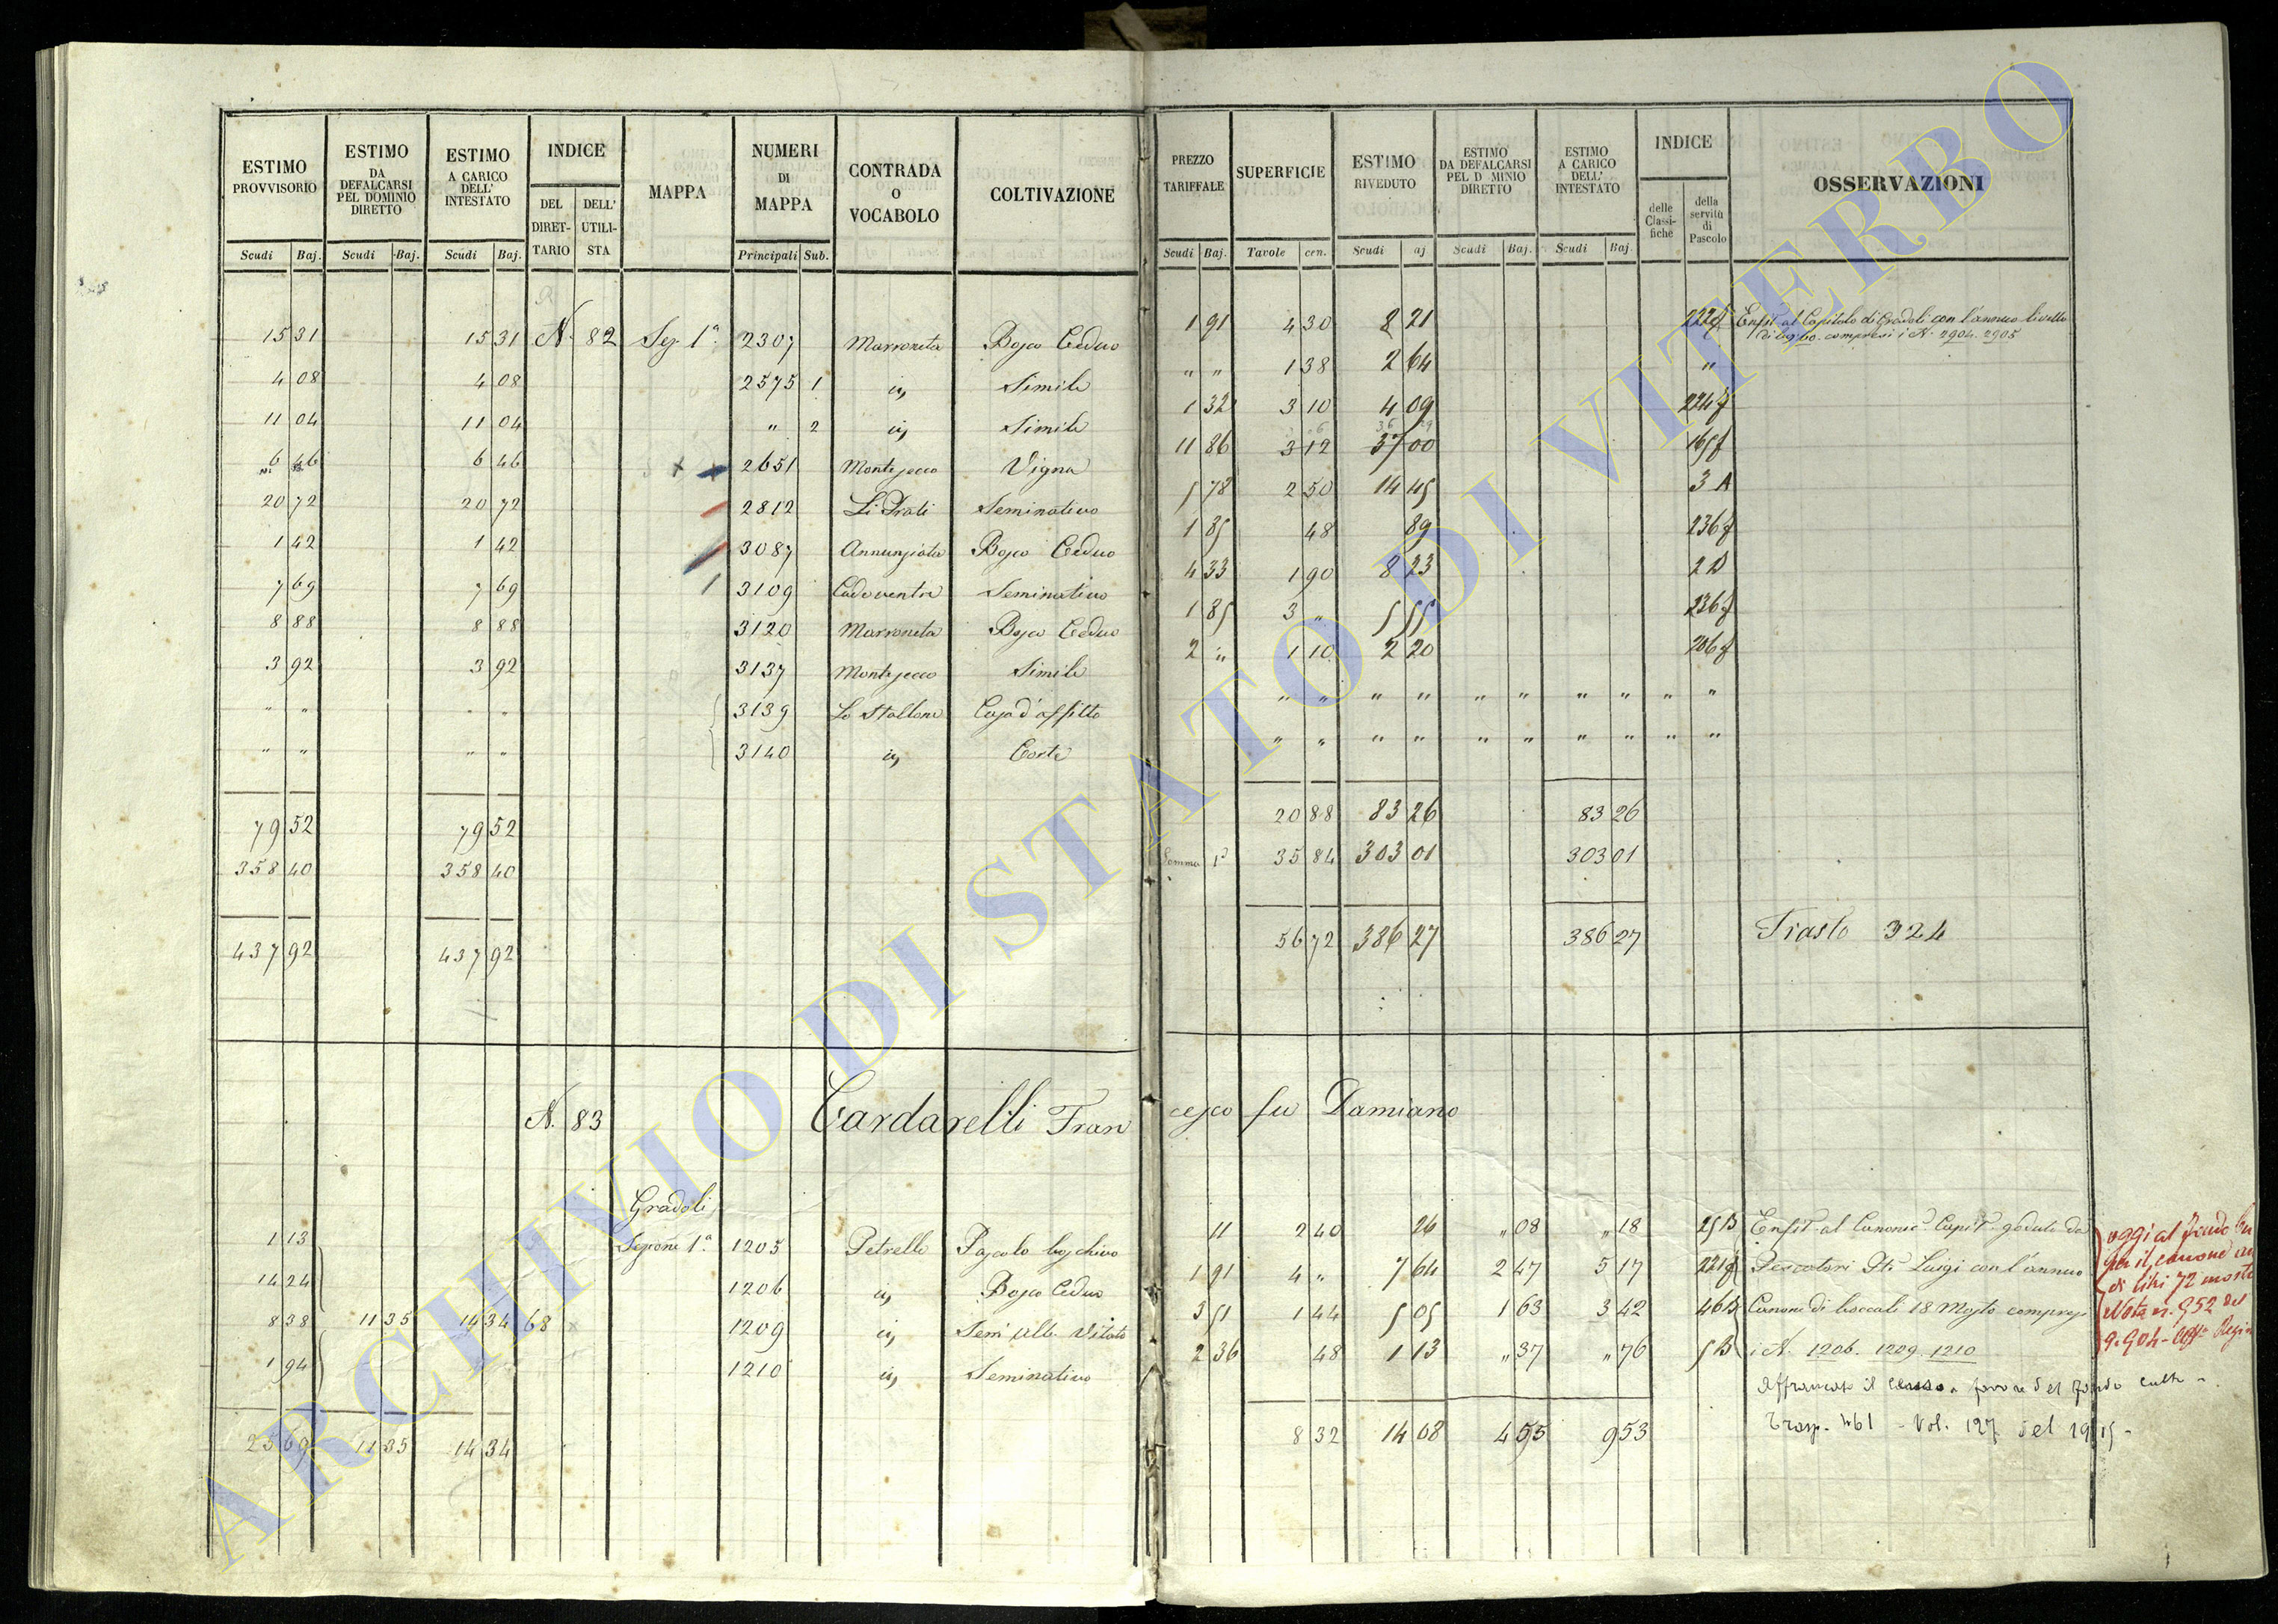 ESTIMO PROVVISORIO | ESTIMO DA DEFALCARSI PEL DOMINIO DIRETTO | ESTIMO A CARICO DELL' INTESTATO | INDICE | MAPPA | NUMERI DI MAPPA | CONTRADA O VOCABOLO | COLTIVAZIONE | PREZZO TARIFFALE | SUPERFICIE | ESTIMO RIVEDUTO | ESTIMO DA DEFALCARSI PEL D MINIO DIRETTO | ESTIMO A CARICO DELL' INTESTATO | INDICE | OSSERVAZIONI
DEL DIRETTARIO | DELL' UTILISTA | delle Classifiche | della servitù di Pascolo
Scudi | Baj. | Scudi | Baj. | Scudi | Baj. | Principali | Sub. | Scudi | Baj. | Tavole | cen. | Scudi | aj | Scudi | Baj. | Scudi | Baj.
15 31 | 15 31 | N. 82 | Sez. 1ª | 2307 | Marroneta | Bosco Ceduo | 1 91 | 4 30 | 8 21 | 222 f | Enfit. al Capitolo di Gradoli con l'annuo livello
compresi i N. 2904. 2905
4 08 | 4 08 | 2575 1 | id | Simile | " " | 1 38 | 2 64 | "
11 04 | 11 04 | " 2 | id | Simile | 1 32 | 3 10 | 4 09 | 224 f
6 46 | 6 46 | 2651 | Montesecco | Vigna | 11 86 | 3 12 | 37 00 | 165 f
20 72 | 20 72 | 2812 | Li Prati | Seminativo | 5 78 | 2 50 | 14 45 | 3 A
1 42 | 1 42 | 3087 | Annunziata | Bosco Ceduo | 1 85 | 48 | 89 | 236 f
7 69 | 7 69 | 3109 | Cadoventre | Seminativo | 4 33 | 1 90 | 8 23 | 2 B
8 88 | 8 88 | 3120 | Marroneta | Bosco Ceduo | 1 85 | 3 " | 5 55 | 236 f
3 92 | 3 92 | 3137 | Montesecco | Simile | 2 " | 1 10 | 2 20 | 206 f
" " | " " | 3139 | Lo Stallone | Casa d'affitto | " " | " " | " " | " " | " "
" " | " " | 3140 | id | Corte | " " | " " | " " | " " | " "
79 52 | 79 52 | 20 88 | 83 26 | 83 26
358 40 | 358 40 | Somma 1ª | 35 84 | 303 01 | 303 01
437 92 | 437 92 | 56 72 | 386 27 | 386 27 | Trasto 324
N. 83 Cardarelli Francesco fu Damiano
Gradoli
1 13 | Sezione 1ª | 1205 | Petrello | Pascolo boschivo | 11 | 2 40 | 26 | " 08 | " 18 | 25 B | Enfit. al Canonic. Capit. goduto da
14 24 | 1206 | id | Bosco Ceduo | 1 91 | 4 " | 7 64 | 2 47 | 5 17 | 221 f | Pescatori Luigi con l'annuo
8 38 | 11 35 | 14 34 | 68 | 1209 | id | Sem. alb. vitato | 3 51 | 1 44 | 5 05 | 1 63 | 3 42 | 46 B | Canone di boccali 18 Mosto compresi
1 94 | 1210 | id | Seminativo | 2 36 | 48 | 1 13 | " 37 | " 76 | 5 B | i N. 1206. 1209. 1210
Affrancato il a favore del fondo culto
25 69 | 11 35 | 14 34 | 8 32 | 14 08 | 4 55 | 9 53 | Trasp. 461 - Vol. 127 del 1915 -
oggi al fondo
per il canone
di litri 72 mosto
Nota n. 952 del
ARCHIVIO DI STATO DI VITERBO